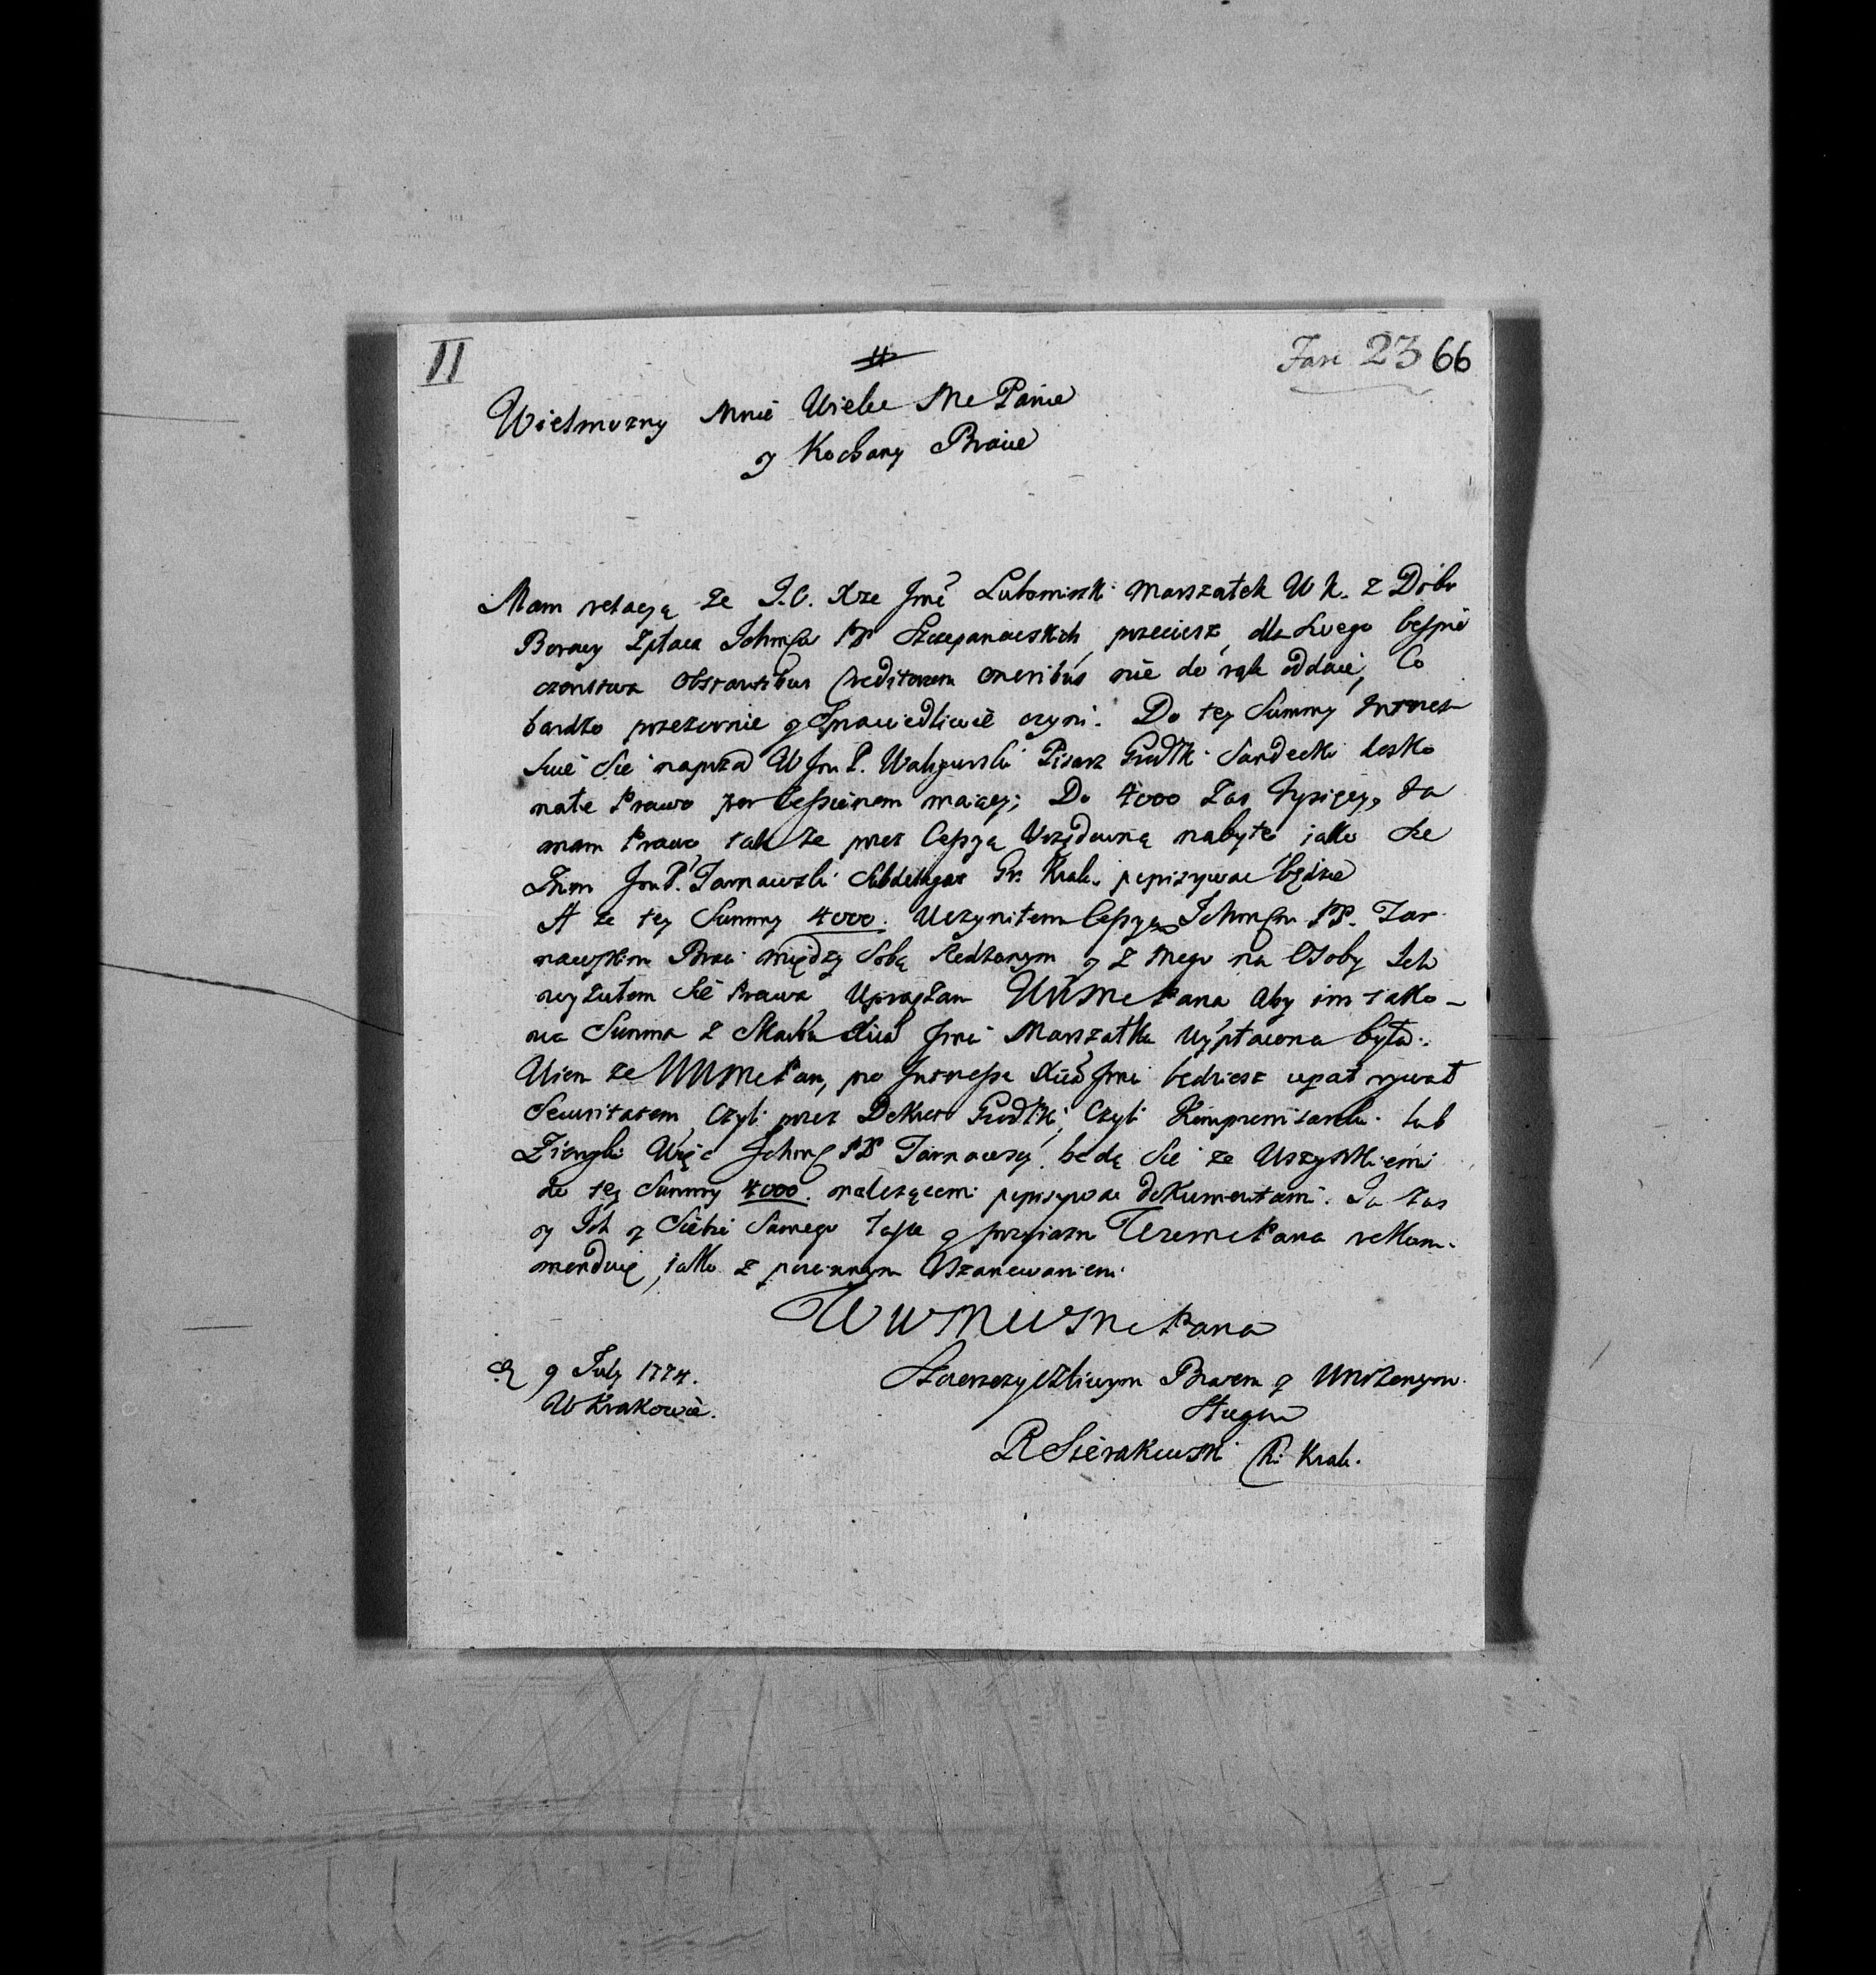 II
11
Fasc 23 66
Wielmozny Mnie Wielce Mc Panie
y Kochany Bracie
Mam relacyą ze J.O. Xze Jmć Lubomirski Marszałek W K. z Dobr
Borowy Zpłaca Ichmciow PP Szczepanowskich, przeciesz, dla Swego bespie
czenstwa obstantibus Creditorum oneribus nie do rąk oddaie, Co
bardzo przezornie y Sprawiedliwie czyni. Do tey Summy Interes
suie Sie naprzod W Jm P. Waligurski Pisarz Grodzki Sandecki dosko
nałe Prawo per Cessionem maiący; Do 4000 Zas Tysięcy, Ja
mam Prawo tak ze przez Cessyą Urzędowną nabyte iako Sie
Jm P. Tarnawski Subdelegat Gr. Krak. popisywac będzie
A ze tey Summy 4000. Uczyniłem Cessyą Ichmciom PP. Tar
nawskim Braci między Sobą Rodzonym y Z mego na Osoby Ich
wyzułem Sie Prawa Upraszam WWMc Pana Aby im tako-
wa Summa z Skarbu Xcia Jmci Marszałka Wypłacona była.
Wiem ze WWMc Pan, pro Interesse Xcia Jmci będziesz upatrywał
Securitatem, Czyli przez Dekret Grodzki, Czyli Kompromisarski lub
Ziemski Więc Ichmć PP Tarnawscy będą Sie ze Wszystkiemi
do tey Summy 4000. należącemi popisywac dokumentami. Ja zas
y Ich y Siebie Samego łasce y przyiazni WMc Pana rekom-
menduię, iako z powinnym Uszanowaniem
WWMWMc Pana
D. 9 July 1774.
W Krakowie.
Szczerzezyczliwym Bratem y Unizonym
Sługą
R Sierakowski K. Krak.